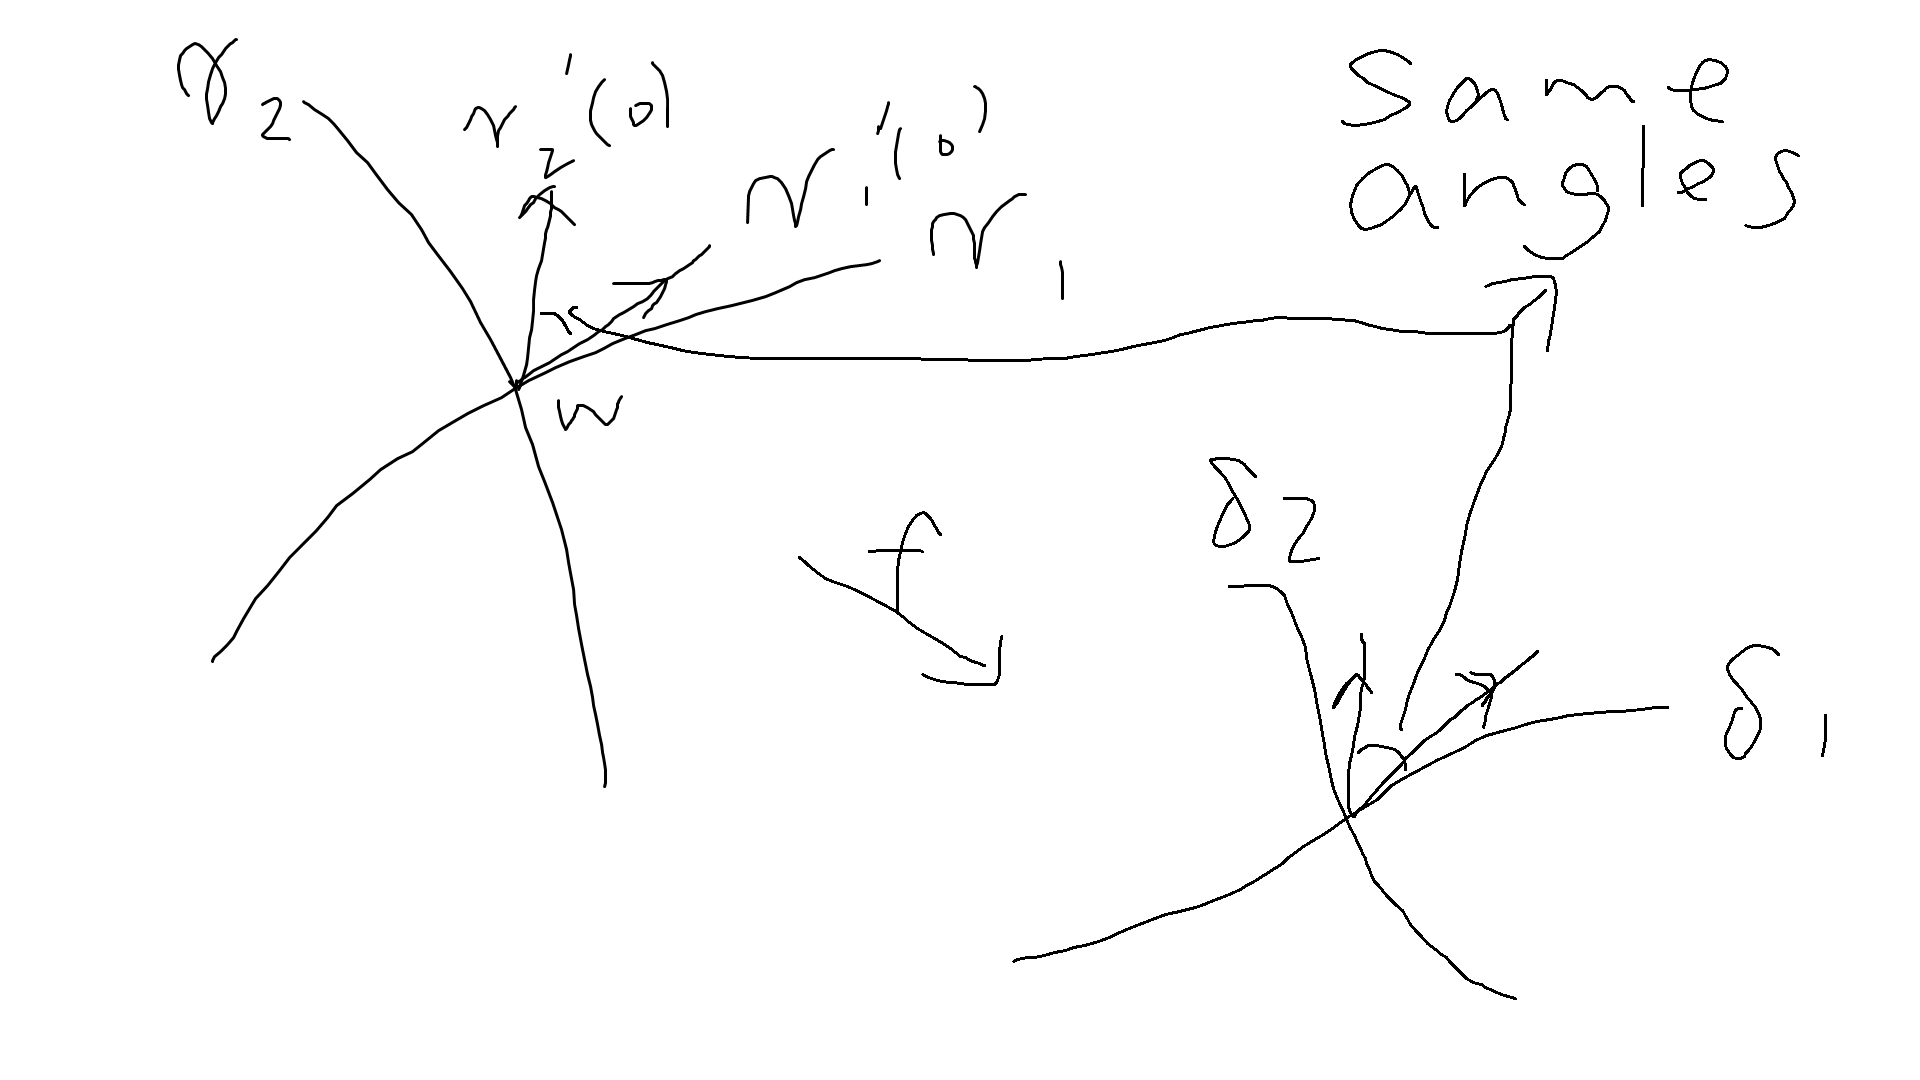 γ₂
γ₂'(0)
γ₁'(0)
γ₁
same
angles
w
f
δ₂
δ₁